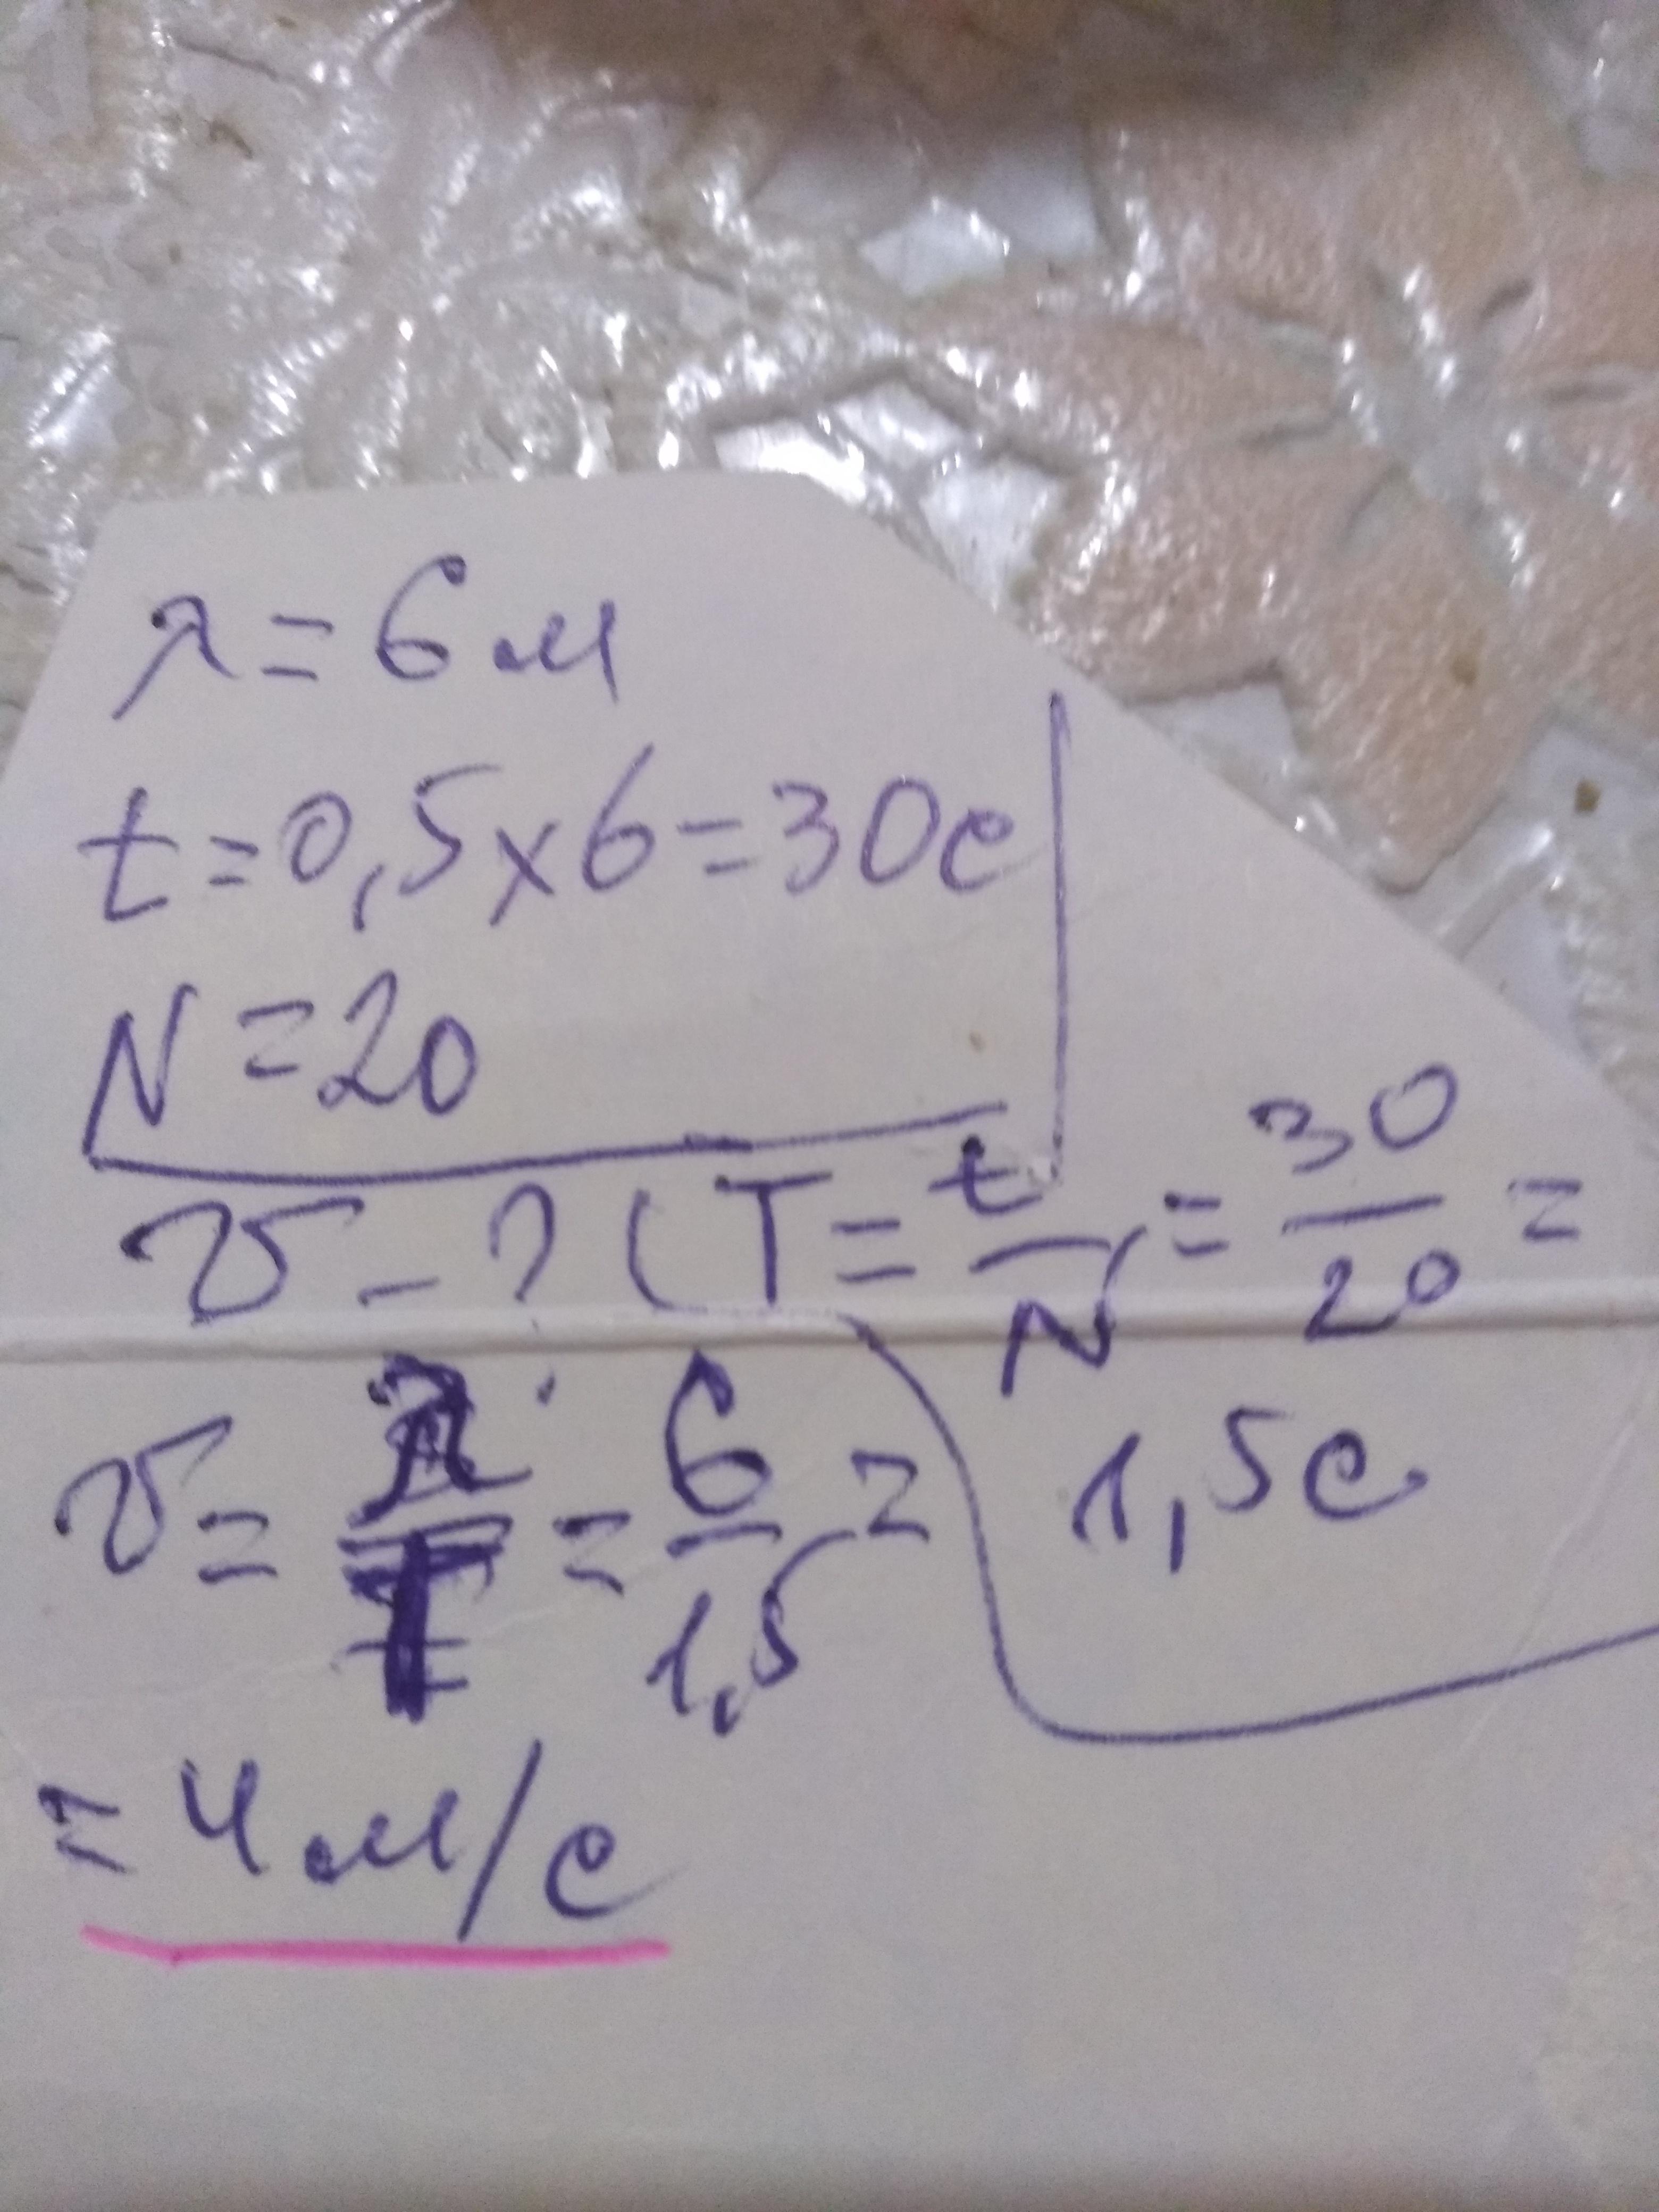 λ = 6 м
t = 0,5 x 6 = 30 с
N = 20
υ - ? T = t/N = 30/20 =
1,5 с
υ = λ/T = 6/1,5 =
= 4 м/с